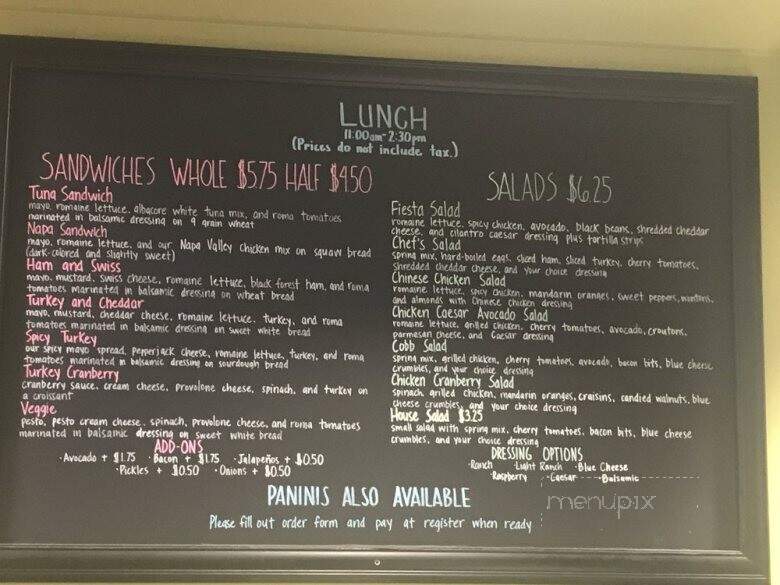 LUNCH
11:00am-2:30pm
(Prices do not include tax.)
SANDWICHES WHOLE $5.75 HALF $4.50
Tuna Sandwich
mayo, romaine lettuce, albacore white tuna mix, and roma tomatoes
marinated in balsamic dressing on 9 grain wheat
Napa Sandwich
mayo, romaine lettuce, and our Napa Valley chicken mix on squaw bread
(dark-colored and slightly sweet)
Ham and Swiss
mayo, mustard, swiss cheese, romaine lettuce, black forest ham, and roma
tomatoes marinated in balsamic dressing on wheat bread
Turkey and Cheddar
mayo, mustard, cheddar cheese, romaine lettuce, turkey, and roma
tomatoes marinated in balsamic dressing on sweet white bread
Spicy Turkey
our spicy mayo spread, pepperjack cheese, romaine lettuce, turkey, and roma
tomatoes marinated in balsamic dressing on sourdough bread
Turkey Cranberry
cranberry sauce, cream cheese, provolone cheese, spinach, and turkey on
a croissant
Veggie
pesto, pesto cream cheese, spinach, provolone cheese, and roma tomatoes
marinated in balsamic dressing on sweet white bread
ADD-ONS
·Avocado + $1.75 ·Bacon + $1.75 ·Jalapeños + $0.50
·Pickles + $0.50 ·Onions + $0.50
SALADS $6.25
Fiesta Salad
romaine lettuce, spicy chicken, avocado, black beans, shredded cheddar
cheese, and cilantro caesar dressing plus tortilla strips
Chef's Salad
spring mix, hard-boiled eggs, sliced ham, sliced turkey, cherry tomatoes,
shredded cheddar cheese, and your choice dressing
Chinese Chicken Salad
romaine lettuce, spicy chicken, mandarin oranges, sweet peppers, wontons,
and almonds with Chinese chicken dressing
Chicken Caesar Avocado Salad
romaine lettuce, grilled chicken, cherry tomatoes, avocado, croutons,
parmesan cheese, and Caesar dressing
Cobb Salad
spring mix, grilled chicken, cherry tomatoes, avocado, bacon bits, blue cheese
crumbles, and your choice dressing
Chicken Cranberry Salad
spinach, grilled chicken, mandarin oranges, craisins, candied walnuts, blue
cheese crumbles, and your choice dressing
House Salad $3.25
small salad with spring mix, cherry tomatoes, bacon bits, blue cheese
crumbles, and your choice dressing
DRESSING OPTIONS
·Ranch ·Light Ranch ·Blue Cheese
·Raspberry ·Caesar ·Balsamic
PANINIS ALSO AVAILABLE
Please fill out order form and pay at register when ready
menupix